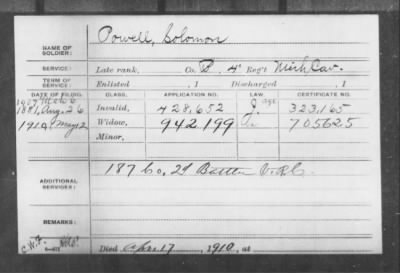 NAME OF SOLDIER: Powell, Solomon
SERVICE: Late rank, Co. 4" Reg't Mich Cav.
TERM OF SERVICE: Enlisted , 1 Discharged , 1
DATE OF FILING. CLASS. APPLICATION NO. LAW. CERTIFICATE NO.
1907
1881, Aug. 26 Invalid, 428.652 323.165
1910, May 12 Widow, 942199 705625
Minor,
ADDITIONAL SERVICES: 187 Co. 2d Battn V.R.C.
REMARKS:
C.W.F.
Died Apr. 17 , 1910, at